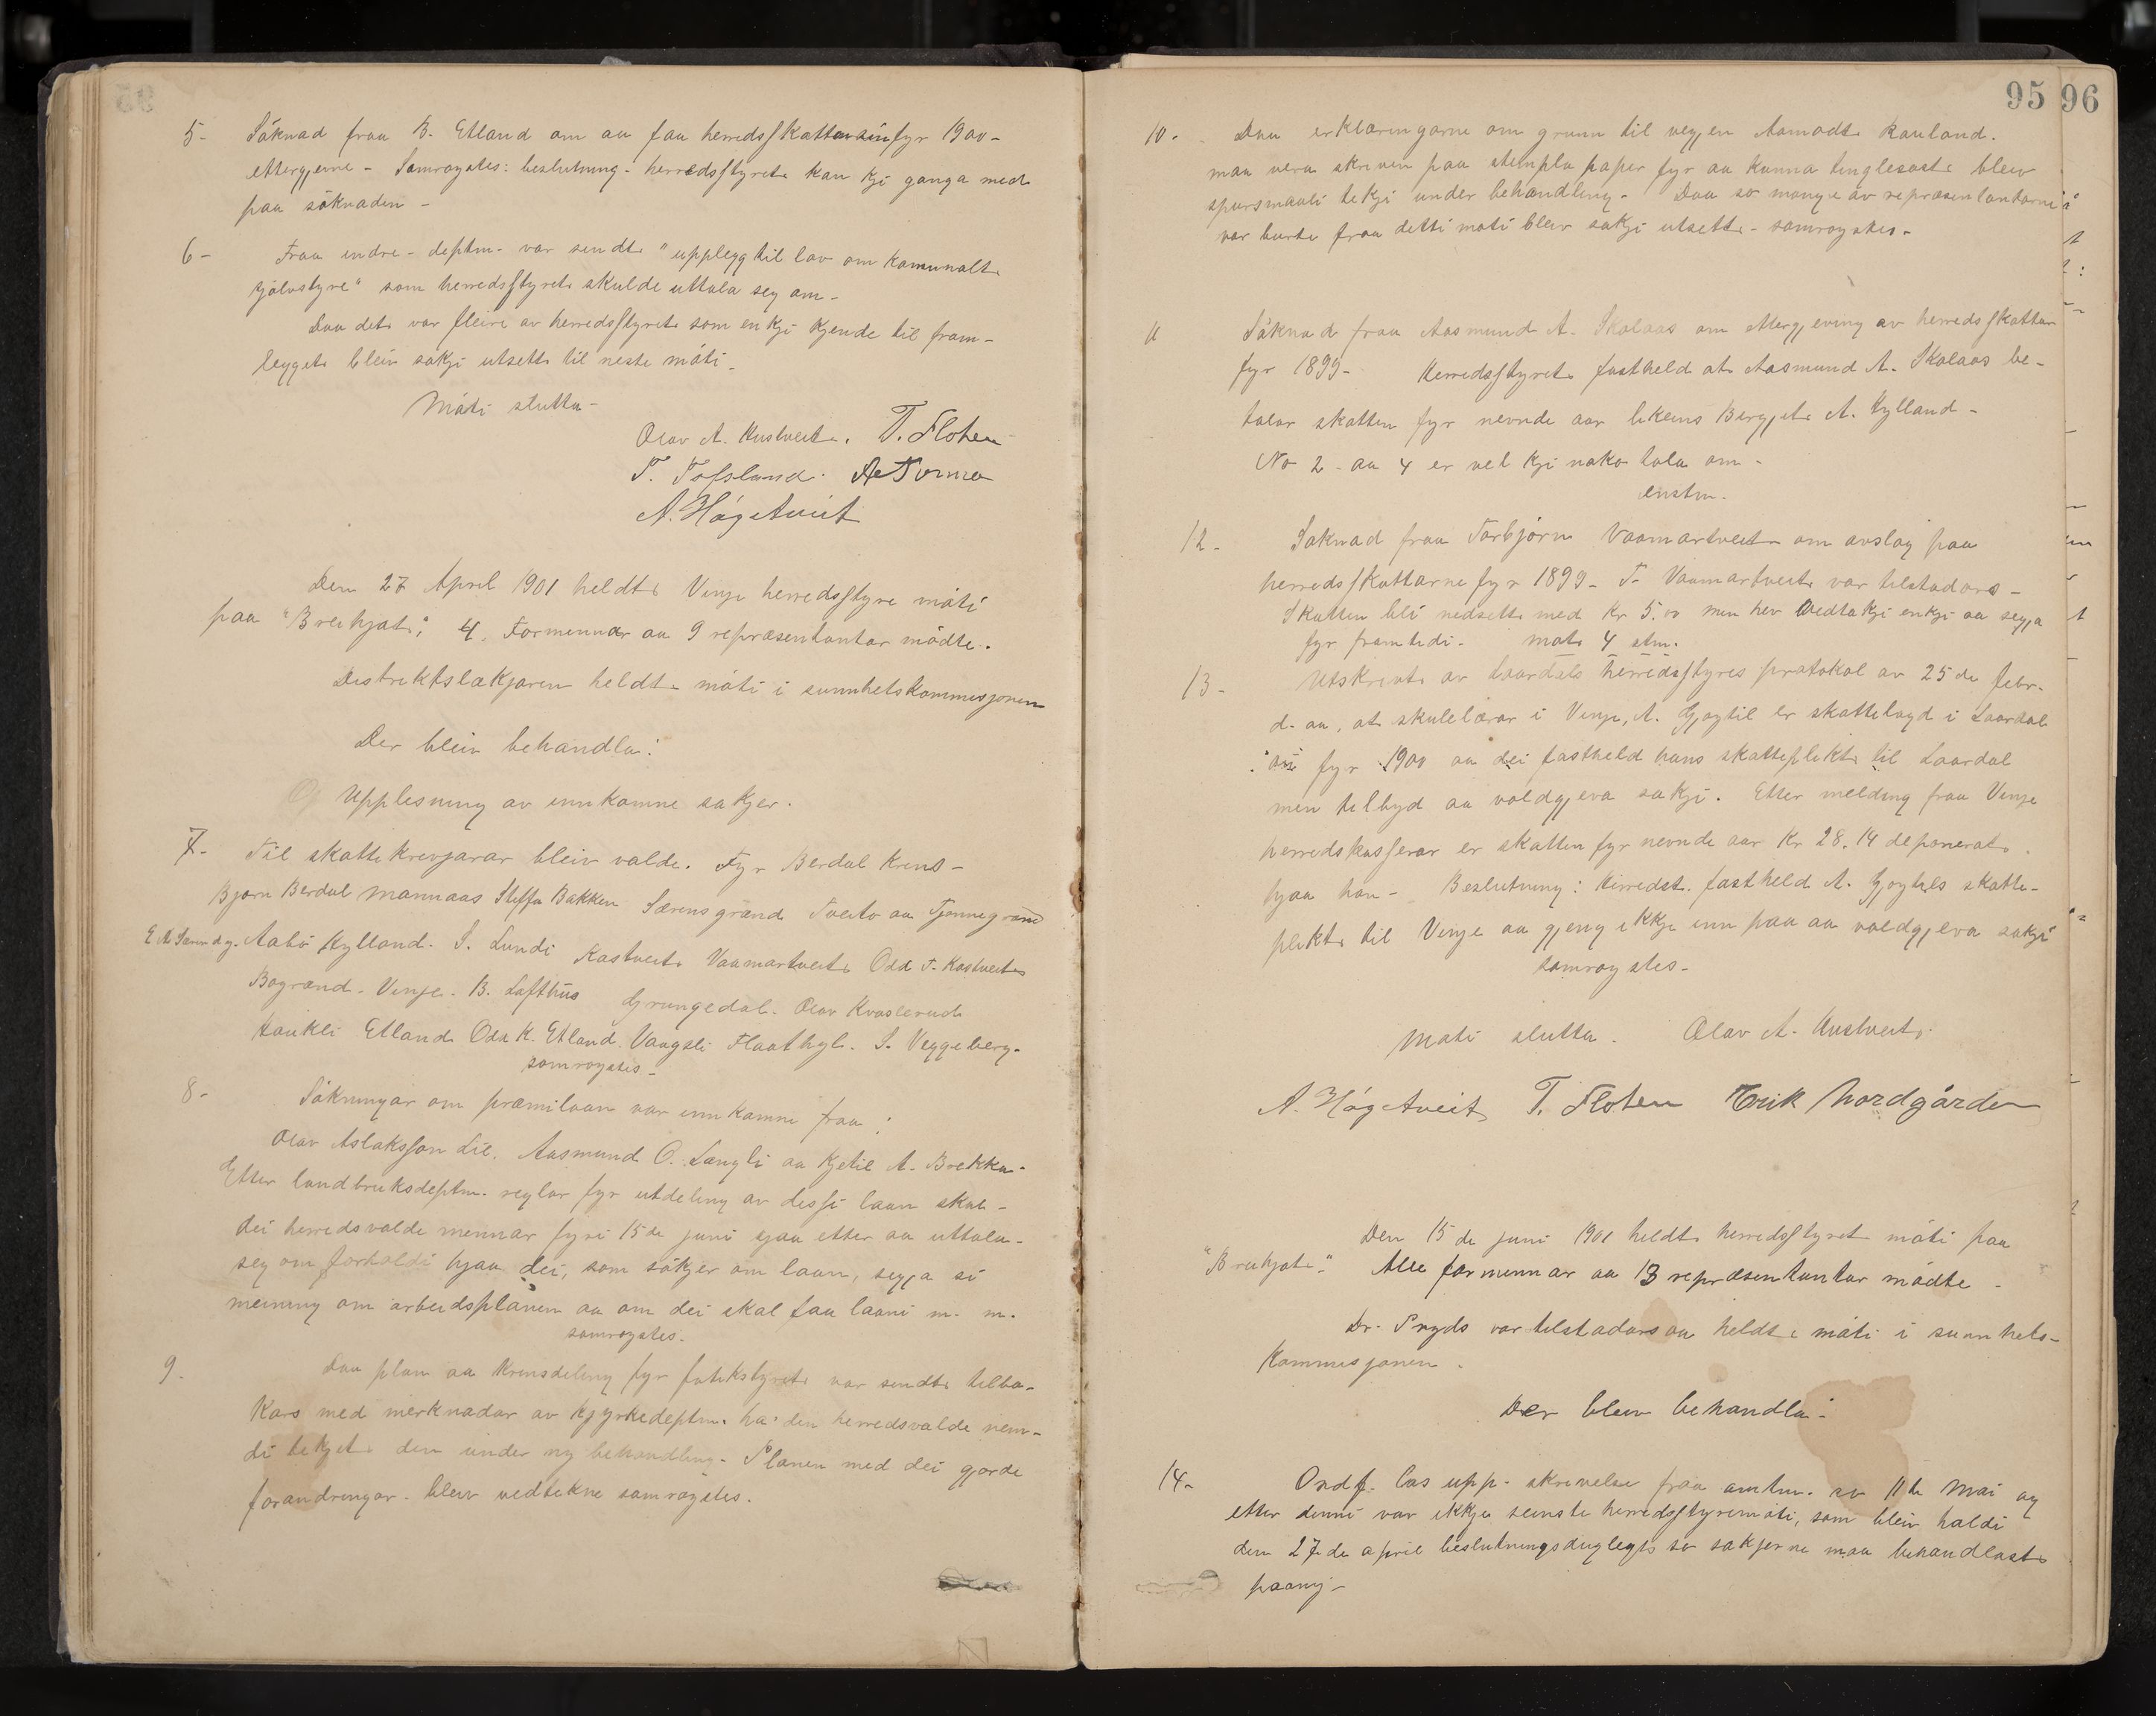 5- Söknad fraa B. Etland om aa faa herredsskattansin fyr 1900-
ettergjevne - Samroystes: beslutning - herredsstyret kan kji ganga med
paa söknaden -
6- Fraa indre-deptm. var sendt "upplegg til lov om komunalt
sjölvstyre" som herredsstyret skulde uttala seg om -
Daa det var fleire av herredsstyret som en kji kjende til fram-
legget blein sakji utsett til neste möti -
Möti slutta -
Olav A. Kustveit. T. Floten
T. Tofsland. A Tormo
A. Högetveit
Den 27 April 1901 heldt Vinje herredsstyre möti
paa "Breihjat"; 4 Formennar aa 9 repræsentantar mödte.
Distriktslækjaren heldt möti i sunnhetskommisjonen
Der blein behandla:
Upplesning av innkomne sakjer.
7- Til skattekrevjarar bleiv valde. Fyr Berdal krins -
Bjørn Berdal Mannaas Steffa Bakken Særensgrænd Tveito aa Tjønnegrænd
Aabö Hylland. S. Lundi Kostveit Vaamartveit Odd T. Kostveit
Bøgrænd - Vinje - B. Lofthus Grungedal - Olav Kvaslerud
Haukli Etland Odd K. Etland. Vaagsli Flaathyl. S. Veggeberg.
samroystes -
8- Sökningar om præmilaan var innkomne fraa:
Olav Aslaksson Lie. Aasmund O. Langli aa Kjetil A. Brekka -
Etter landbruksdeptm. reglar fyr utdeling av dessi laan skal -
dei herredsvalde mennar fyri 15de juni sjaa etter aa uttala -
seg om forholdi hjaa dei, som sökjer om laan, seggja si
meining om arbeidsplanen aa om dei skal faa laani m. m.
samroystes -
9. Daa plan aa krinsdeling fyr fatikstyret var sendt tilba-
kars med merknadar av kjyrkedeptm. ha den herredsvalde nem-
di tekjet den under ny behandling - Planen med dei gjorde
forandringar - bleiv vedtekne samroystes.
95 96
10. Daa erklæringarne om grunn til vegjen Aamodt Rauland.
maa vera skriven paa stempla paper fyr aa kunna tinglesast bleiv
spursmaali tekji under behandling - Daa so mange av repræsentantarne
var burte fraa detti möti bleiv sakji utsett - samroystes -
11 Söknad fraa Aasmund A. Skalaas om ettergjeving av herredsskatten
fyr 1899 - Herredsstyret fastheld at Aasmund A. Skalaas be-
talar skatten fyr nevnde aar likeins Bergjit A. Hylland -
No 2 - aa 4 er vel kji nako tala om -
einstm.
12 - Söknad fraa Torbjörn Vaamartveit om avslag paa
herredsskattarne fyr 1899 - T. Vaamartveit var tilstadars -
Skatten bli nedsett med Kr 5.00 men hev vedtakji en kji aa seggja
fyr framtidi - mot 4 stm.
13 - Utskrivt av Laardals herredsstyres protokol av 25de febr.
d. aa, at skulelærar i Vinje, A. Gjøytil er skattelagd i Laardal
fyr 1900 aa dei fastheld hans skatteplikt til Laardal
men tilbyd aa voldgjeva sakji. Etter melding fraa Vinje
herredskasserar er skatten fyr nevnde aar Kr 28.14 deponerat.
hjaa han - Beslutning: Herredst. fastheld A. Gjøytils skatte-
plikt til Vinje aa gjeng ikkje inn paa aa voldgjeva sakji
samroystes -
Möti slutta. Olav A. Kustveit.
A. Högetveit T. Floten Eirik Nordgården
Den 15de juni 1901 heldt herredsstyret möti paa
"Breihjat". Alle formennar aa 13 repræsentantar mödte -
Dr. Pryds var tilstadars aa heldt möti i sunnhets-
kommisjonen.
Der bleiv behandla:
14 - Ordf. las upp - skrivelse fraa amtm. av 11te Mai og
etter denni var ikkje seinste herredsstyremöti, som blein haldi
den 27de april beslutningsdyglegt so sakjerne maa behandlast
paany -